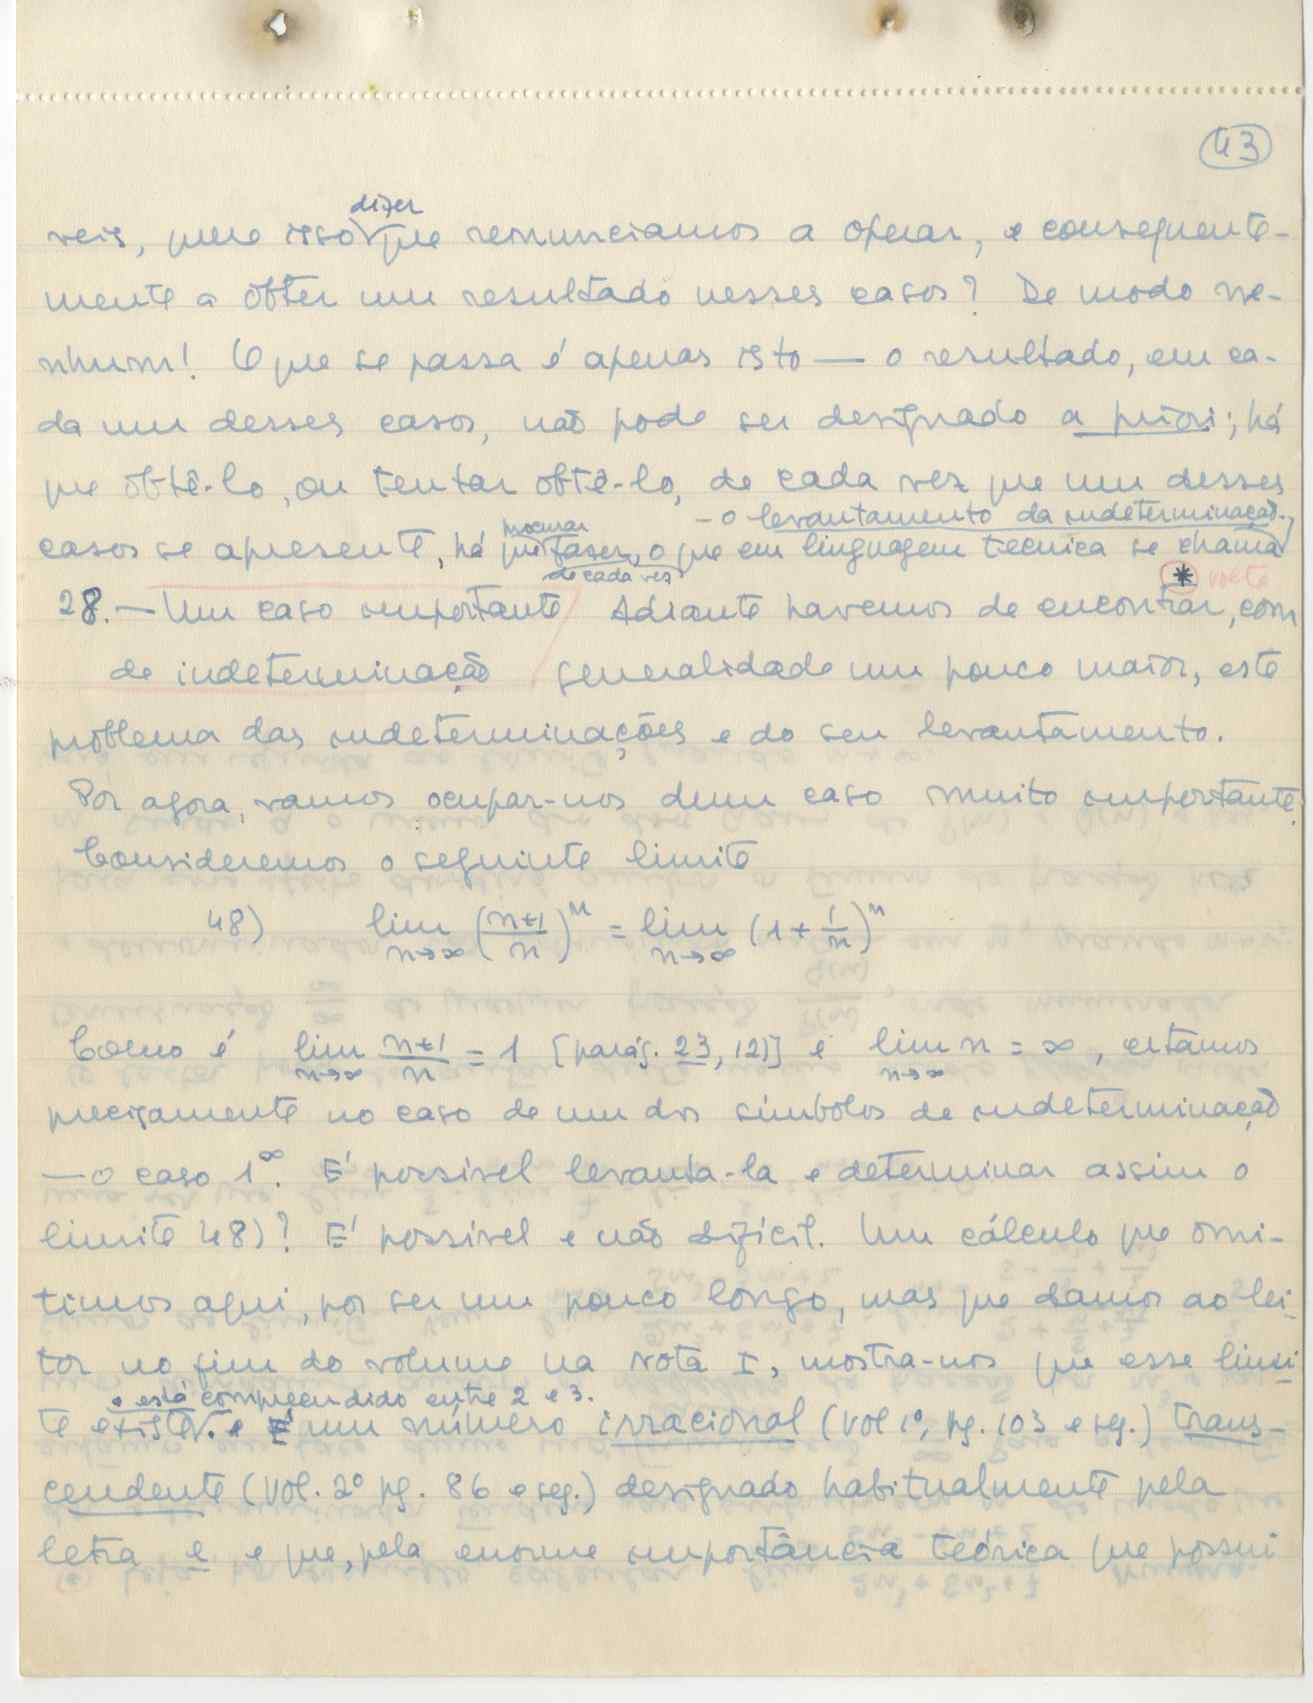 43
dizer
veis, quere isso que renunciamos a operar, e consequente-
mente a obter um resultado nesses casos? De modo ne-
nhum! O que se passa é apenas isto — o resultado, em ca-
da um desses casos, não pode ser designado a priori; há
que obtê-lo, ou tentar obtê-lo, de cada vez que um desses
procurar — o levantamento da indeterminação.
casos se apresente, há que fazer, o que em linguagem técnica se chama
de cada vez * volte
28. — Um caso importante Adiante havemos de encontrar, com
de indeterminação generalidade um pouco maior, este
problema das indeterminações e do seu levantamento.
Por agora, vamos ocupar-nos dum caso muito importante.
Consideremos o seguinte limite
48) lim n→∞ (n+1/n)^n = lim n→∞ (1 + 1/n)^n
Como é lim n→∞ n+1/n = 1 [parág. 23, 12)] e lim n→∞ n = ∞, estamos
precisamente no caso de um dos símbolos de indeterminação
— o caso 1^∞. É possível levanta-la e determinar assim o
limite 48)? É possível e não difícil. Um cálculo que omi-
timos aqui, por ser um pouco longo, mas que damos ao lei-
tor no fim do volume na nota I, mostra-nos que esse limi-
e está compreendido entre 2 e 3.
te existe. e É um número irracional (vol 1º, pg. 103 e seg.) trans-
cendente (vol. 2º pg. 86 e seg.) designado habitualmente pela
letra e e que, pela enorme importância teórica que possui